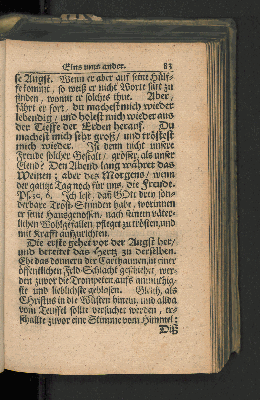 Eins umb ander. 83
se Angst. Wenn er aber auf seine Hülf-
fe kömmt, so weiß er nicht Worte satt zu
finden, womit er solches thue. Aber,
fährt er fort, du machest mich wieder
lebendig/ und holest mich wieder aus
der Tieffe der Erden herauf. Du
machest mich sehr groß/ und tröstest
mich wieder. Ist denn nicht unsere
Freude solcher Gestalt/ grösser als unser
Elend? Den Abend lang währet das
Weinen; aber des Morgens/ wenn
der gantze Tag noch für uns, die Freude.
Ps. 30, 6. Ich lese, daß GOtt dren son-
derbare Trost-Stunden habe, worinnen
er seine Hausgenossen, nach seinem väter-
lichen Wohlgefallen, pfleget zu trösten, und
mit Krafft auffzurichten.
Die erste gehet vor der Angst her/
und bereitet das Hertz zu derselben.
Ehe das donnern der Carthaunen, in einer
öffentlichen Feld-Schlacht geschiehet, wer-
den zuvor die Trompeten auffs anmuthig-
ste und lieblichste geblasen. Gleich, als
Christus in die Wüsten hinein, und allda
vom Teuffel sollte versuchet werden, er-
schallte zuvor eine Stimme vom Himmel:
Diß